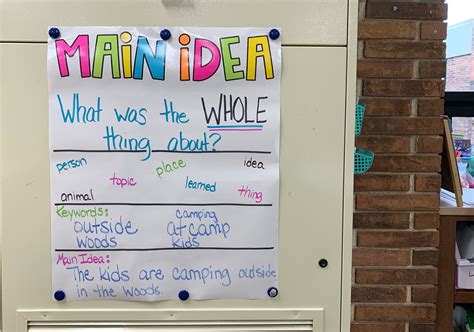 MAIN IDEA
What was the WHOLE
thing about?
person topic place learned idea
animal thing
Keywords: camping
outside at camp
woods kids
Main Idea:
The kids are camping outside
in the woods.